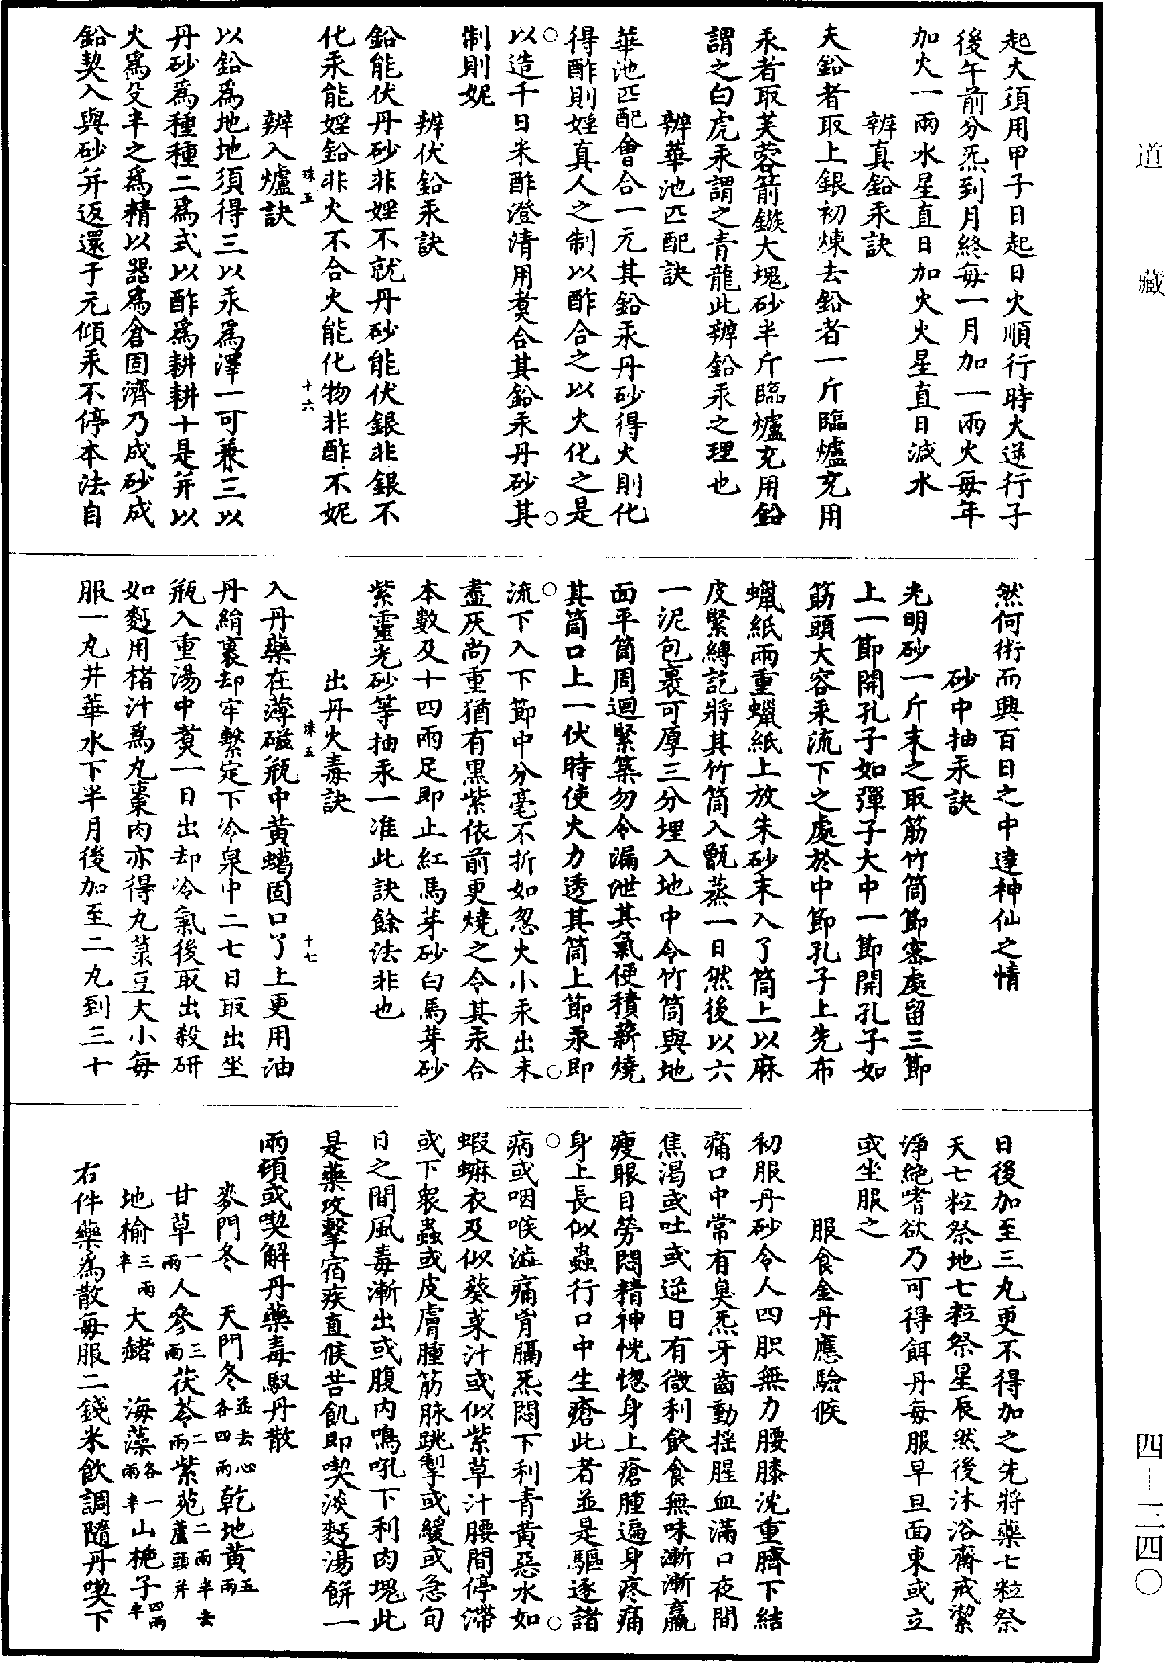 道藏
四—二四〇
起火須用甲子日起日火順行時火逆行子
後午前分炁到月終每一月加一兩火每年
加火一兩水星直日加火火星直日減水
辨真鉛汞訣
夫鉛者取上銀初煉去鉛者一斤臨爐充用
汞者取芙蓉箭鏃大塊砂半斤臨爐充用鉛
謂之白虎汞謂之青龍此辨鉛汞之理也
辨華池匹配訣
華池匹配會合一元其鉛汞丹砂得火則化
得酢則婬真人之制以酢合之以火化之是
以造千日米酢澄清用煑合其鉛汞丹砂其
制則妮
辨伏鉛汞訣
鉛能伏丹砂非婬不就丹砂能伏銀非銀不
化汞能婬鉛非火不合火能化物非酢不妮
珠五
十六
辨入爐訣
以鉛為地地須得三以汞為澤一可兼三以
丹砂為種種二為式以酢為耕耕十是并以
火為殳半之為精以器為倉固濟乃成砂成
鉛契入與砂并返還于元傾汞不停本法自
然何術而興百日之中達神仙之情
砂中抽汞訣
光明砂一斤末之取筋竹筒節塞處留三節
上一節開孔子如彈子大中一節開孔子如
筯頭大容汞流下之處於中節孔子上先布
蠟紙兩重蠟紙上放朱砂末入了筒上以麻
皮緊縛訖將其竹筒入甑蒸一日然後以六
一泥包裹可厚三分埋入地中令竹筒與地
面平筒周迴緊築勿令漏泄其氣便積薪燒
其筒口上一伏時使火力透其筒上節汞即
流下入下節中分毫不折如忽火小汞出未
盡灰尚重猶有黑紫依前更燒之令其汞合
本數及十四兩足即止紅馬芽砂白馬芽砂
紫靈光砂等抽汞一准此訣餘法非也
出丹火毒訣
珠五
十七
入丹藥在薄磁瓶中黃蠟固口了上更用油
丹絹裹却牢繫定下冷泉中二七日取出坐
瓶入重湯中煑一日出却冷氣後取出殺研
如麪用楮汁為丸棗肉亦得丸菉豆大小每
服一丸井華水下半月後加至二丸到三十
日後加至三丸更不得加之先將藥七粒祭
天七粒祭地七粒祭星辰然後沐浴齋戒潔
淨絕嗜欲乃可得餌丹每服早旦面東或立
或坐服之
服食金丹應驗候
初服丹砂令人四肢無力腰膝沈重臍下結
痛口中常有臭炁牙齒動搖腥血滿口夜間
焦渴或吐或逆日有微利飲食無味漸漸羸
瘦眼目勞悶精神恍惚身上瘡腫遍身疼痛
身上長似蟲行口中生瘡此者並是驅逐諸
病或咽喉澁痛胷膈炁悶下利青黃惡水如
蝦蟆衣及似葵菜汁或似紫草汁腰間停滯
或下衆蟲或皮膚腫筋脉跳掣或緩或急旬
日之間風毒漸出或腹内鳴吼下利肉塊此
是藥攻擊宿疾直候苦飢即喫淡麪湯餅一
兩頓或喫解丹藥毒馭丹散
麥門冬 天門冬並去心各四兩乾地黃五兩
甘草一兩人參三兩茯苓二兩紫苑二兩半去蘆頭并
地榆三兩半大赭 海藻各一兩半山梔子四兩半
右件藥為散每服二錢米飲調隨丹喫下